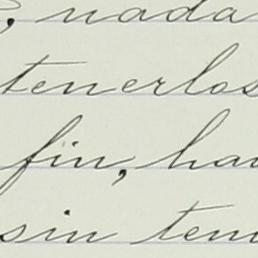 , nada
tenerlos
fin, ha
sin ten